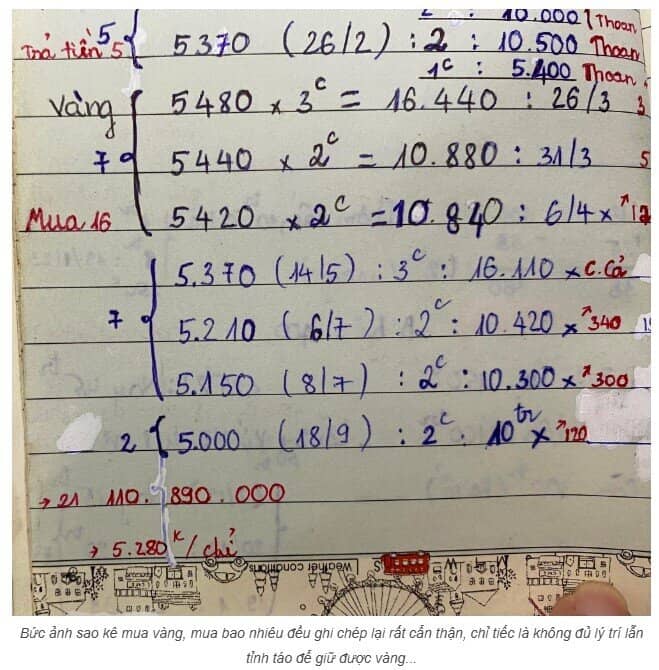 10.000 (Thoan
Trả tiền 5 5 5370 (26/2) : 2 : 10.500 Thoan
1c : 5.400 Thoan
Vàng 5480 x 3c = 16.440 : 26/3 3
7 5440 x 2c = 10.880 : 31/3 5
Mua 16 5420 x 2c = 10.840 : 6/4 x ↗12
5.370 (14/5) : 3c : 16.110 x C.Cả
7 5.210 (6/7) : 2c : 10.420 x ↗340
5.150 (8/7) : 2c : 10.300 x ↗300
2 5.000 (18/9) : 2c : 10tr x ↗120
→ 21 110.890.000
→ 5.280k/chỉ
Weather conditions
Bức ảnh sao kê mua vàng, mua bao nhiêu đều ghi chép lại rất cẩn thận, chỉ tiếc là không đủ lý trí lẫn
tỉnh táo để giữ được vàng...